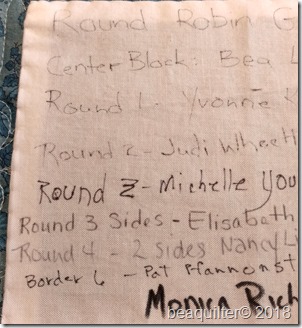 Round Robin G
Center Block: Bea L
Round 1- Yvonne K
Round 2- Judi Wheeth
Round 2- Michelle You
Round 3 Sides - Elisabeth
Round 4 - 2 Sides Nancy Li
Border 6 - Pat Pfannenst
Monica Rich
beaquilter© 2018